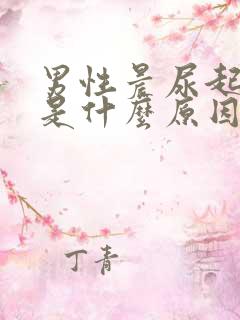 男性晨尿起
是什麼原因
丁青